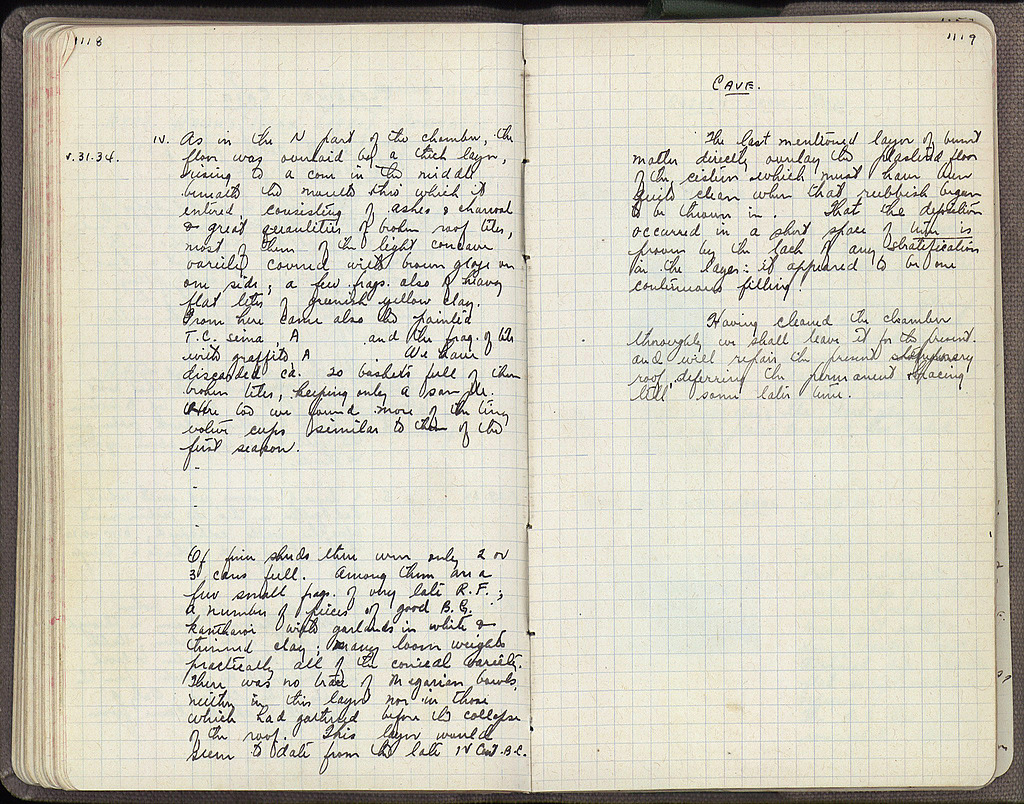 1118
IV. As in the N part of the chamber, the
V.31.34. floor was overlaid by a thick layer,
rising to a cone in the middle
beneath the manhole thro' which it
entered, consisting of ashes & charcoal
& great quantities of broken roof tiles,
most of them of the light concave
variety covered with brown glaze on
one side; a few frags. also of heavy
flat tiles of greenish yellow clay.
From here came also the painted
T.C. sima, A and the frag. of tile
with graffito A We have
discarded ca. 20 baskets full of these
broken tiles, keeping only a sample.
Here too we found more of the tiny
votive cups similar to those of the
first season.
-
-
-
-
Of finer sherds there were only 2 or
3 cans full. Among them are a
few small frags. of very late R.F.;
a number of pieces of good B.G.
kantharoi with garlands in white &
thinned clay; many loom weights
practically all of the conical variety.
There was no trace of Megarian bowls,
neither in this layer nor in those
which had gathered before the collapse
of the roof. This layer would
seem to date from the late IV Cent. B.C.
1119
CAVE.
The last mentioned layer of burnt
matter directly overlay the plastered floor
of the cistern which must have been
quite clean when that rubbish began
to be thrown in. That the deposition
occurred in a short space of time is
proven by the lack of any stratification
in the layer: it appeared to be one
continuous filling.
Having cleared the chamber
thoroughly we shall leave it for the present
and will repair the present temporary
roof, deferring the permanent
till some later time.